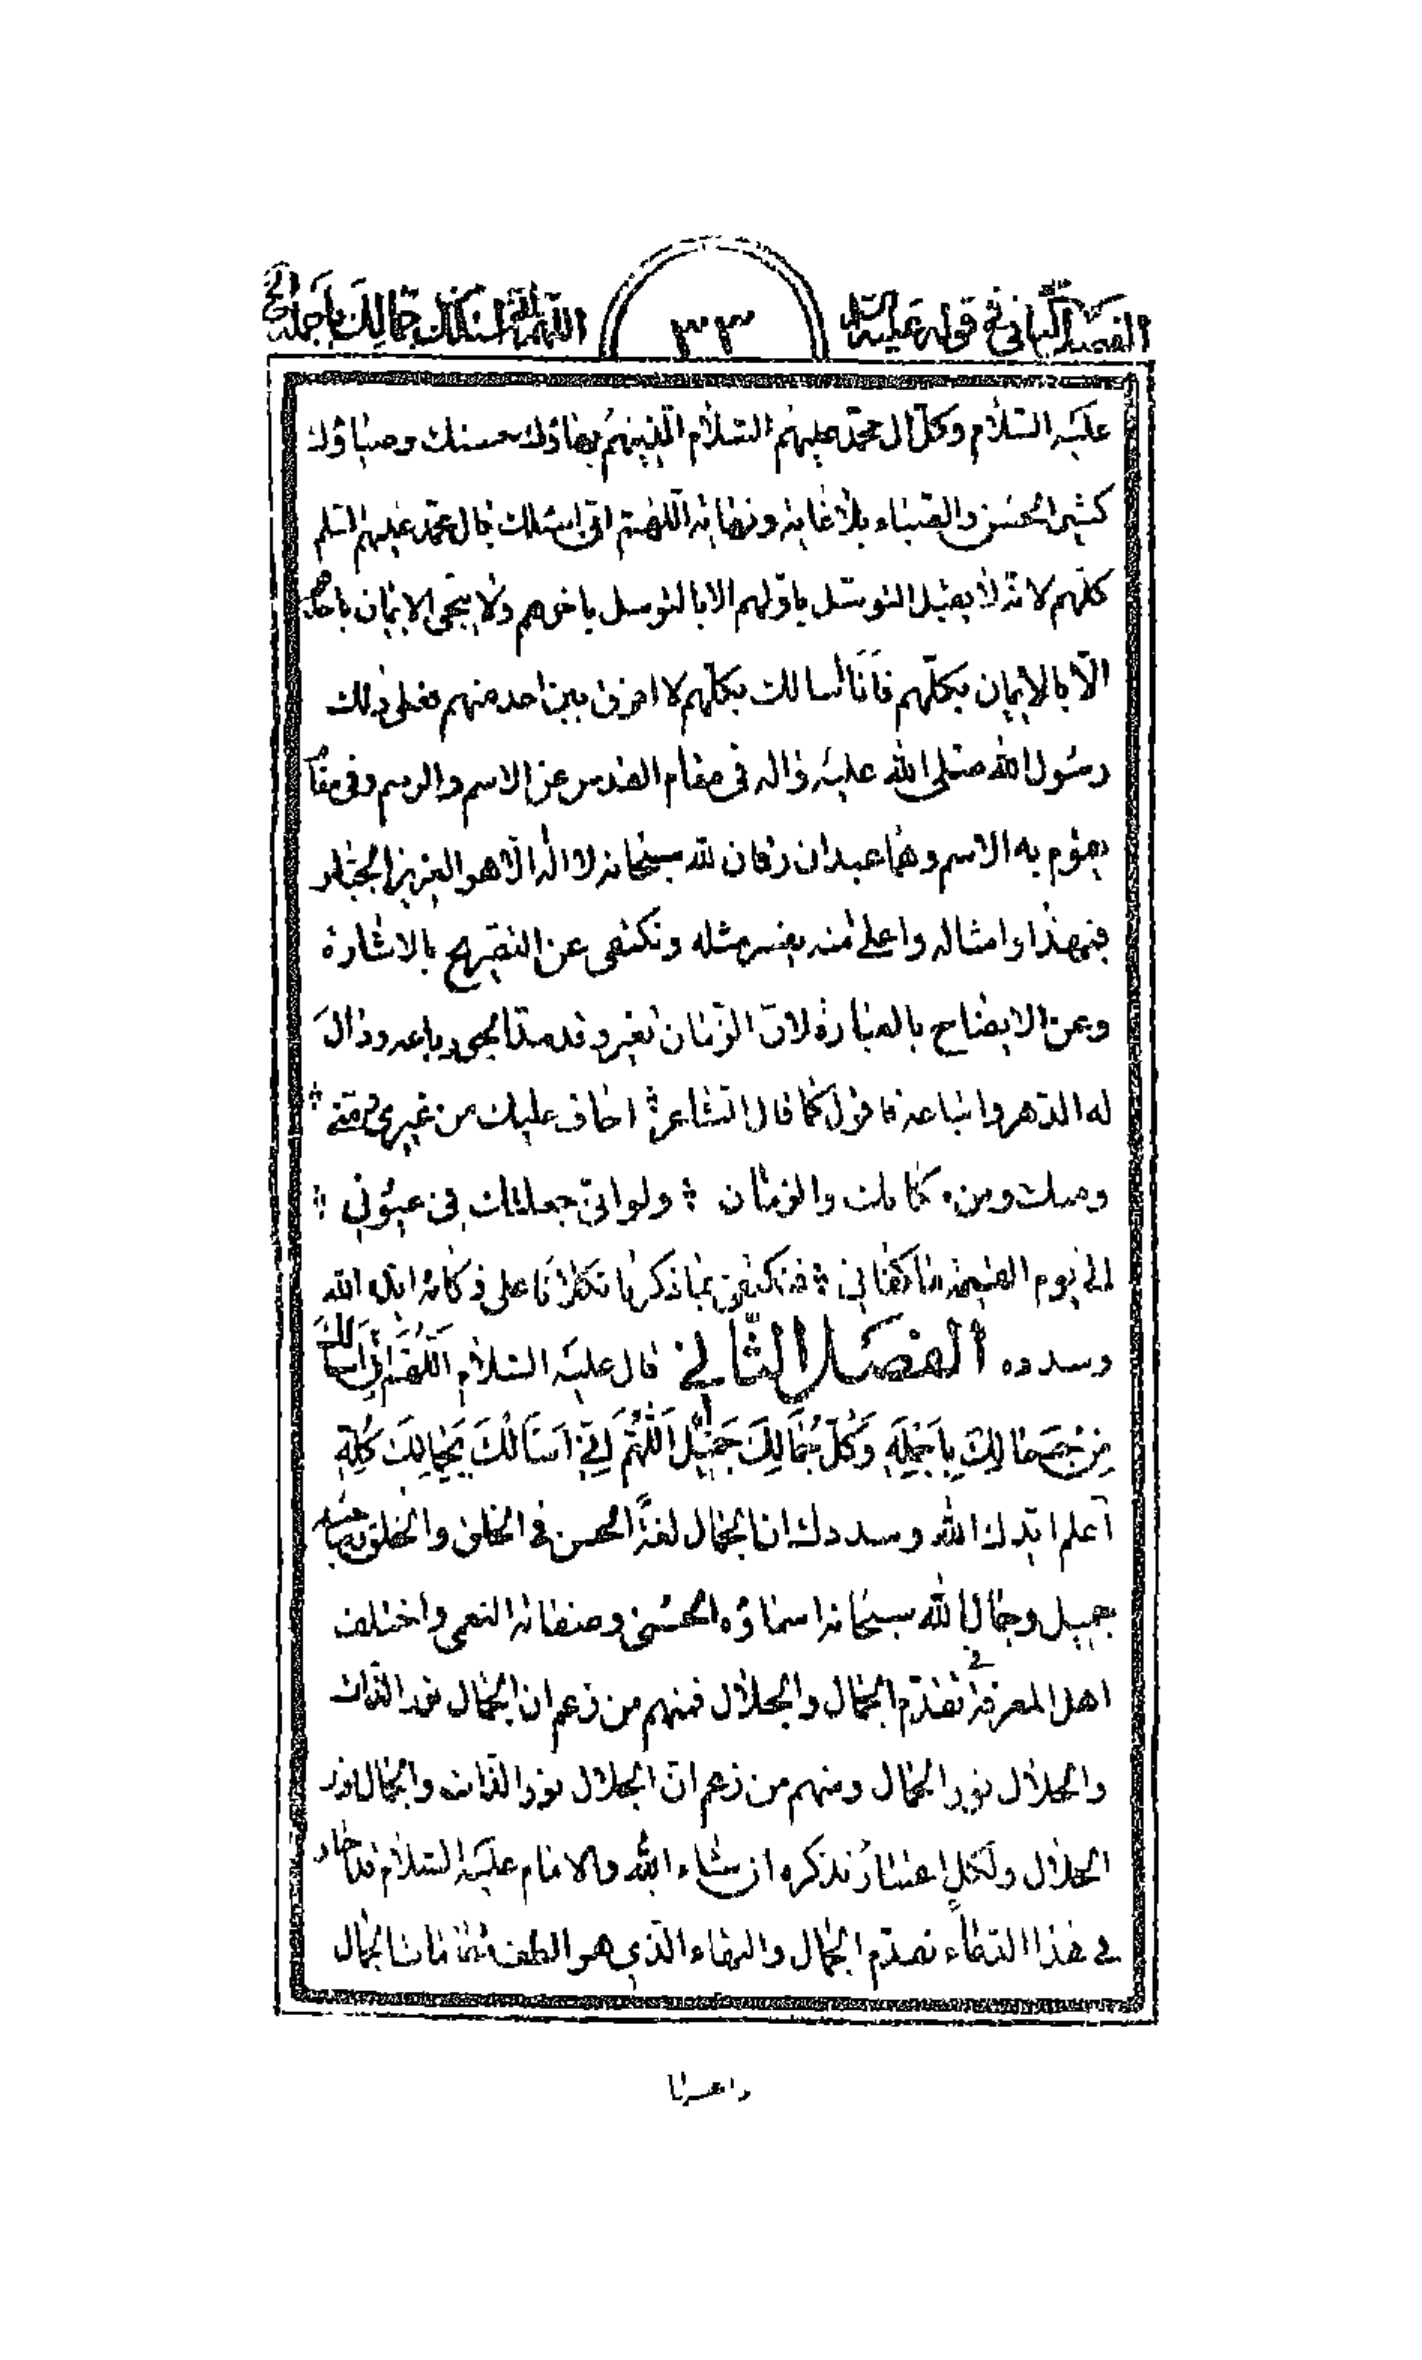 الفصل الثاني في قوله عليه السلام
٣٣
اللهم اني اسئلك من جمالك باجمله الخ
عليه السّلام وكلّ ال محمّد عليهم السّلام الّذينهم بهاؤك حسنك وضياؤك
كثير الحسن والضياء بلا غاية ونهاية اللّهم انّي اسئلك بال محمّد عليهم السّلم
كلّهم لانّه لا يقبل التوسّل باوّلهم الا بالتوسل باخرهم ولا ينجي الايمان باحدهم
الّا بالايمان بكلّهم فَاَنَا اسالك بكلّهم لا افرق بين احد منهم فعلى ذلك
رسول الله صلى الله عليه واله في مقام القدس عن الاسم والرسم وفي مقام
يقوم به الاسم وهما عبدان رقان لله سبحانه لا اله الّا هو العزيز الجبّار
فبهذا وامثاله واعلى منه يفسر مثله ونكتفي عن التصريح بالاشارة
وعن الايضاح بالعبارة لانّ الزّمان تغير وقد مدّ الجور باعه وذالَ
له الدّهر واتباعه فاقول كما قال الشّاعر ؛ اخاف عليك من غيري ومنّي ؛
ومنك ومن مكانك والزمان ؛ ولو انّي جعلتك في عيوني ؛
الى يوم القيمة ما كفاني ؛ فنكتفي بما ذكرنا تكلانا على ذكائه ايّده الله
وسدده الفصل الثّاني قال عليه السّلام اَللّهُمَّ اِنّي اَسالُكَ
مِن جَمالِكَ بِاَجمَلِهِ وَكُلّ جَمالِكَ جَميل اَللّهُمَّ اِنّي اَسَالُكَ بِجَمالِكَ كُلِّهِ
اعلم ايّدك الله وسددك ان الجمال لغةً الحسن في الخلق والخلق
جميل وجمال الله سبحانه اسماؤه الحسنى وصفاته النعمى واختلف
اهل المعرفة في تقدّم الجمال والجلال فمنهم من زعم ان الجمال نور الذّات
والجلال نور الجمال ومنهم من زعم انّ الجلال نور الذّات والجمال نور
الجلال ولكلٍ اعتبارٌ نذكره ان شاء الله والامام عليه السّلام قد اختار
في هذا الدعاء تقدّم الجمال والبهاء الّذي هو الطف مقامات الجمال